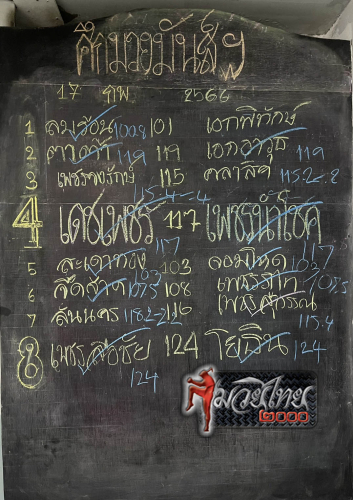 ศึกมวยมันส์ฯ
17 กพ 2566
1 ลมร้อน 100.8 101 เอกพิทักษ์
2 119 119 เอกอาวุธ 119
3 เพชรจตุรักษ์ 115 คลาสิค 115.2-.2
115.4-.4
4 เดชเพชร 117 เพชรนำโชค
117 117
5 สะเดาทอง 103 103 จอมโหด 103
6 107.5 108 107.5
เพชรสุวรรณ
7 สันนคร 118.2-.2 116
115.4
8 เพชรสือชัย 124 โยธิน 124
124
มวยไทย
๒๐๐๐